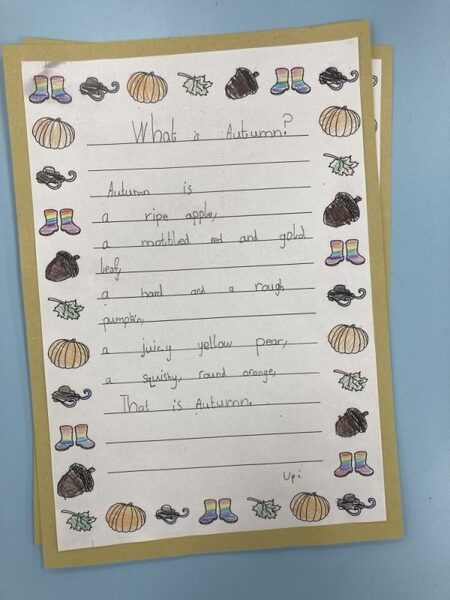 What is Autumn?
Autumn is
a ripe apple,
a mottbled red and gokd
leaf,
a hard and a rough
pumpkin,
a juicy yellow pear,
a squishy, round orange,
That is Autumn.
Upi